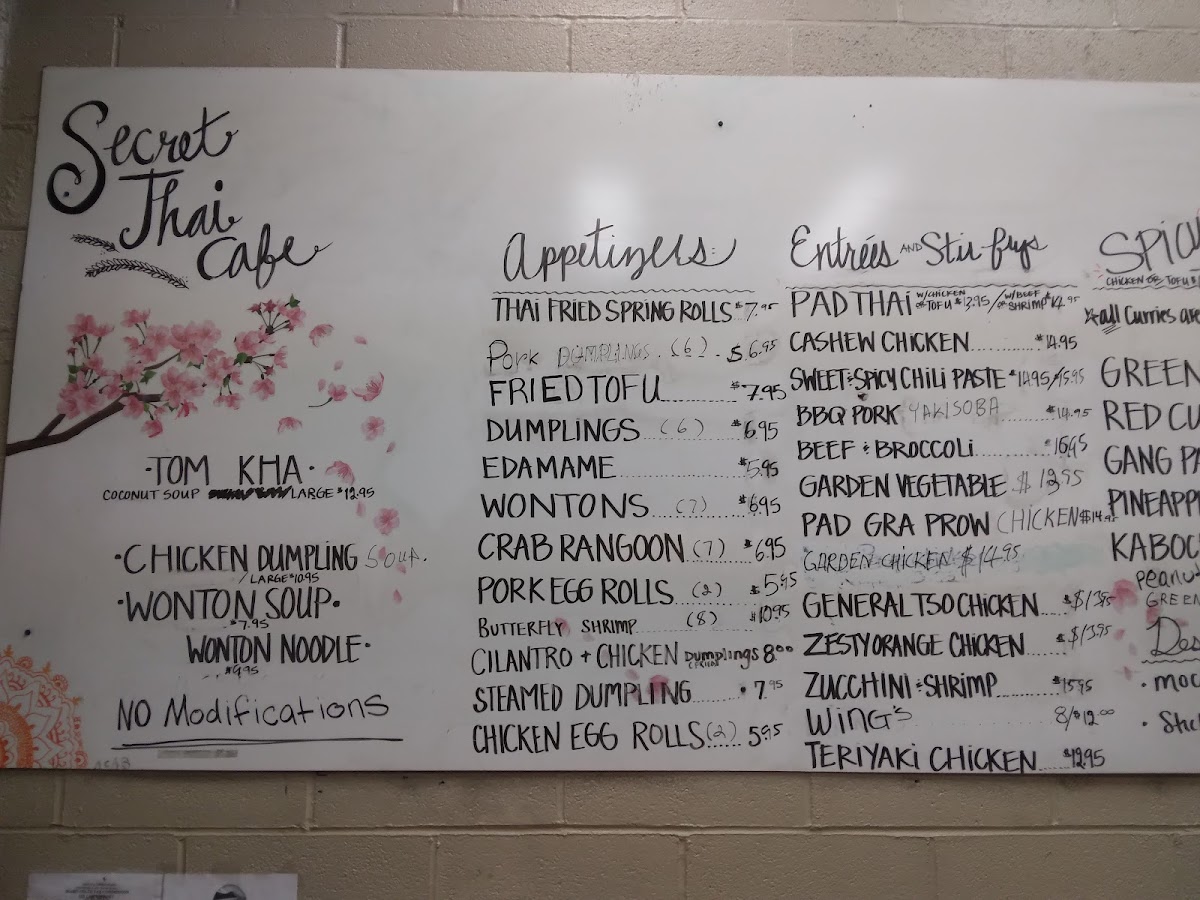 Secret
Thai
Cafe
·TOM KHA·
COCONUT SOUP /LARGE $12.95
·CHICKEN DUMPLING SOUP.
/LARGE $10.95
·WONTON SOUP·
$7.95
WONTON NOODLE·
$9.95
NO Modifications
Appetizers
THAI FRIED SPRING ROLLS $7.95
Pork DUMPLINGS. (6). $6.95
FRIED TOFU $7.95
DUMPLINGS (6) $6.95
EDAMAME $5.95
WONTONS (7) $6.95
CRAB RANGOON (7) $6.95
PORK EGG ROLLS (2) $5.95
BUTTERFLY SHRIMP (8) $10.95
CILANTRO + CHICKEN Dumplings 8.00
STEAMED DUMPLING 7.95
CHICKEN EGG ROLLS (2) 5.95
Entrées AND Stir-frys
PAD THAI W/CHICKEN OR TOFU $13.95 / W/BEEF OR SHRIMP $14.95
CASHEW CHICKEN $14.95
SWEET & SPICY CHILI PASTE $14.95/15.95
BBQ PORK YAKISOBA $14.95
BEEF & BROCCOLI $16.95
GARDEN VEGETABLE $13.95
PAD GRA PROW CHICKEN $14.95
GARDEN CHICKEN $14.95
GENERAL TSO CHICKEN $13.95
ZESTY ORANGE CHICKEN $13.95
ZUCCHINI & SHRIMP $15.95
WING'S 8/$12.00
TERIYAKI CHICKEN $12.95
SPICY
CHICKEN OR TOFU $1
*all Curries are
GREEN
RED CU
GANG PA
PINEAPP
KABOC
Peanut
GREEN
Des
· moc
· Stic